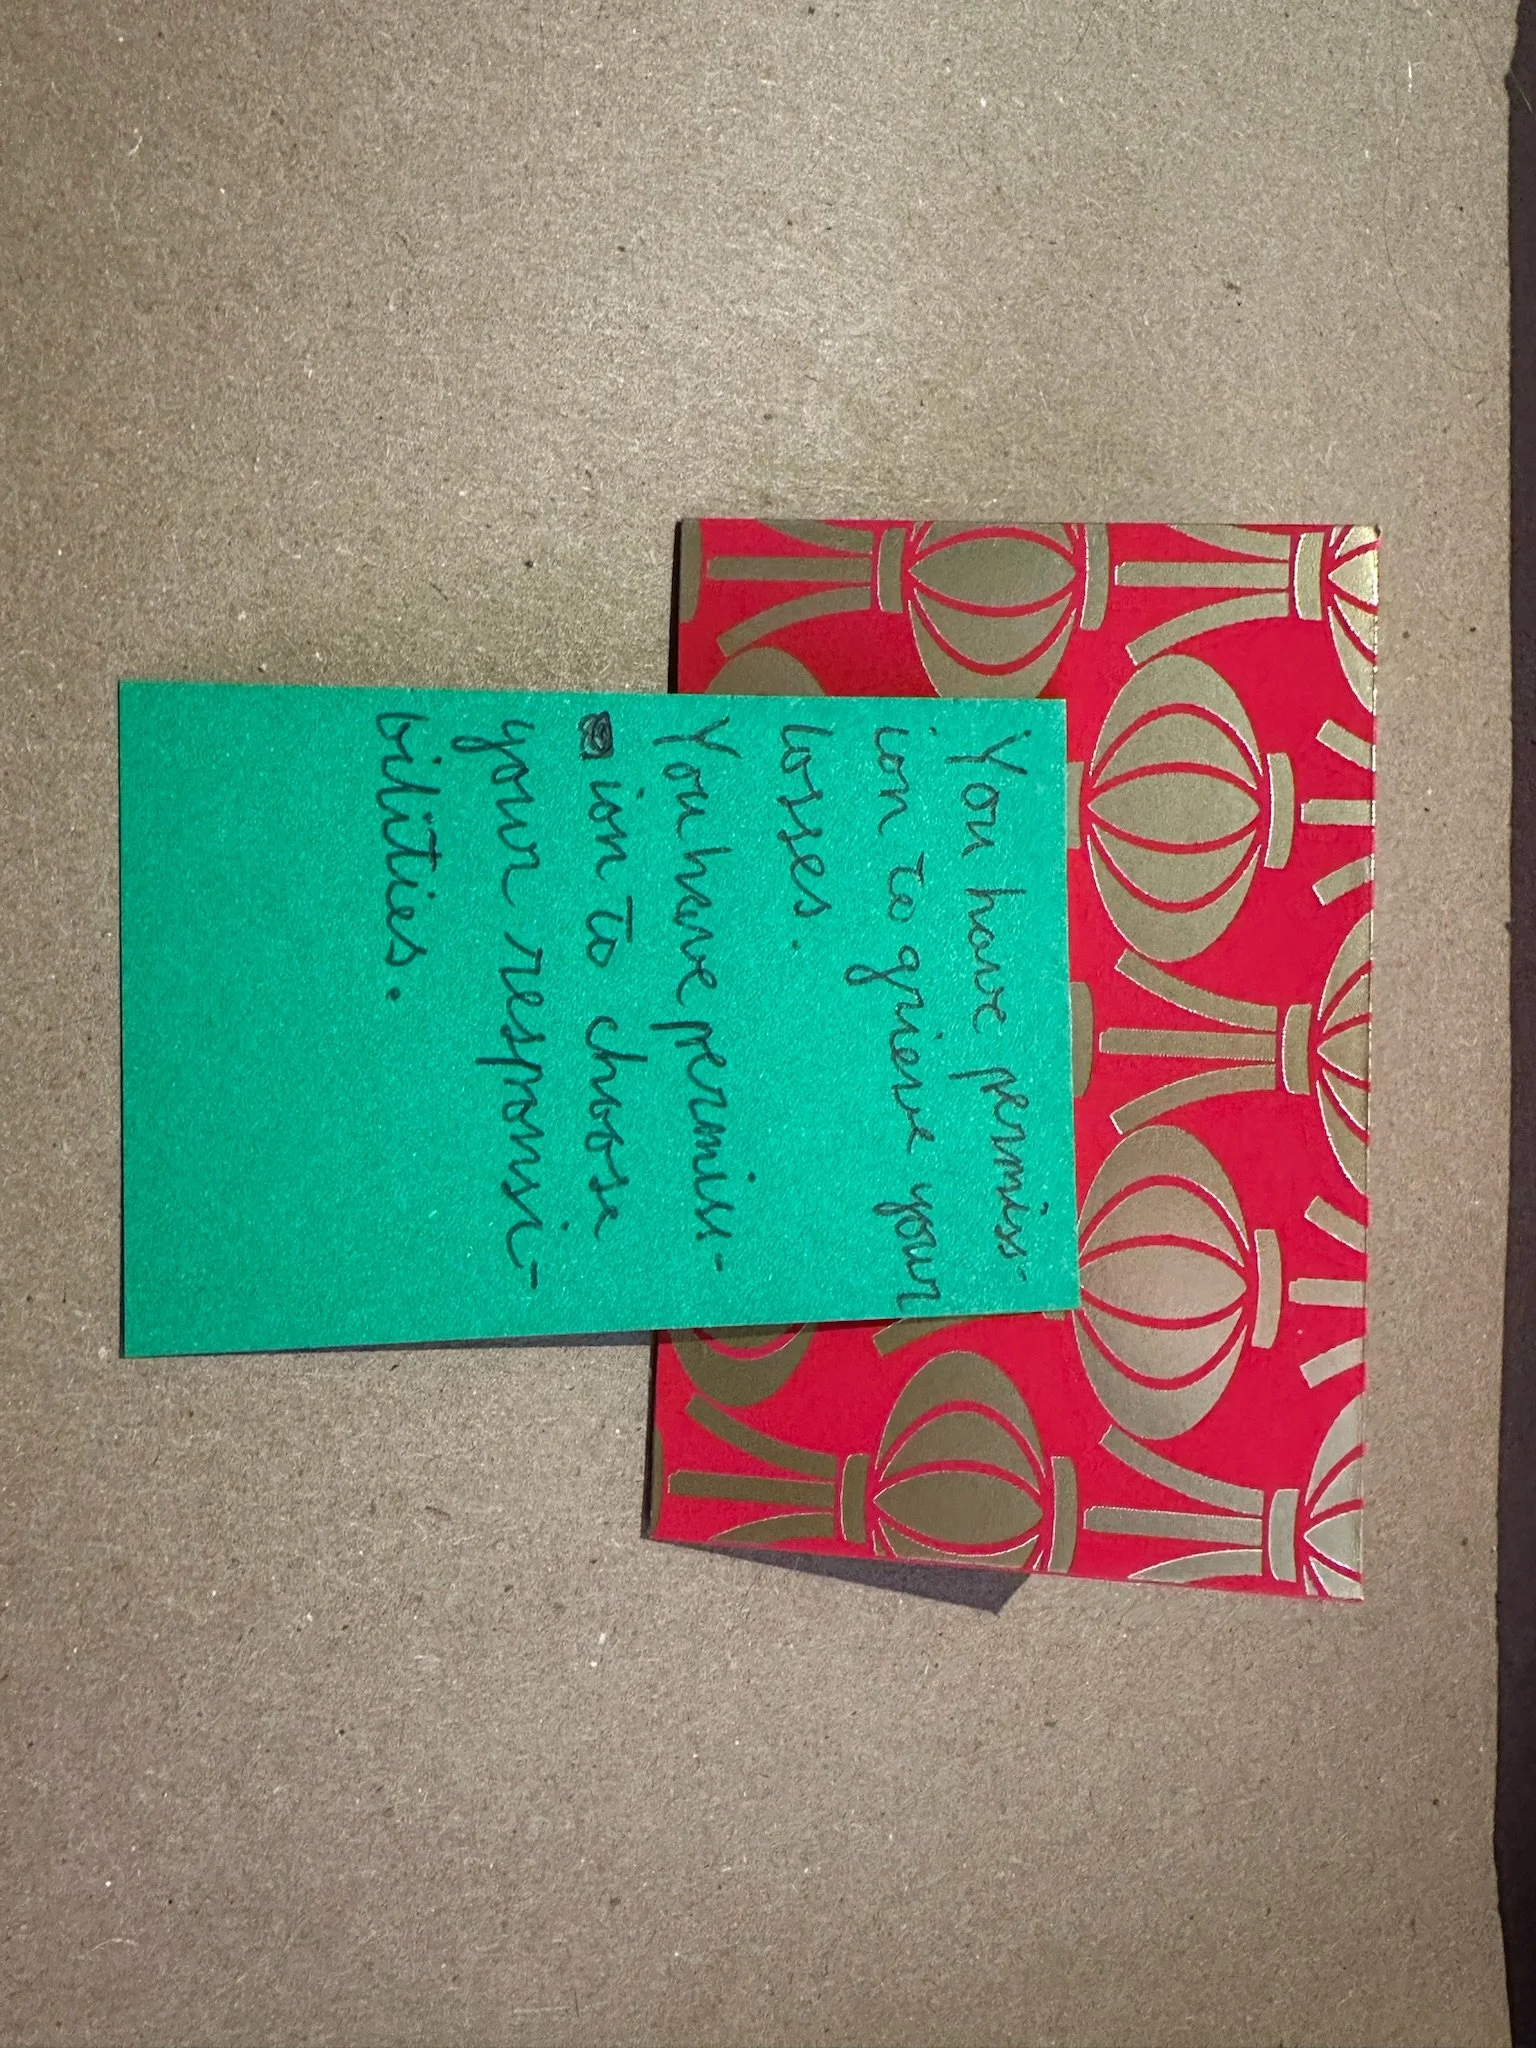 You have permiss-
ion to grieve your
losses.
You have permiss-
ion to choose
your responsi-
bilities.